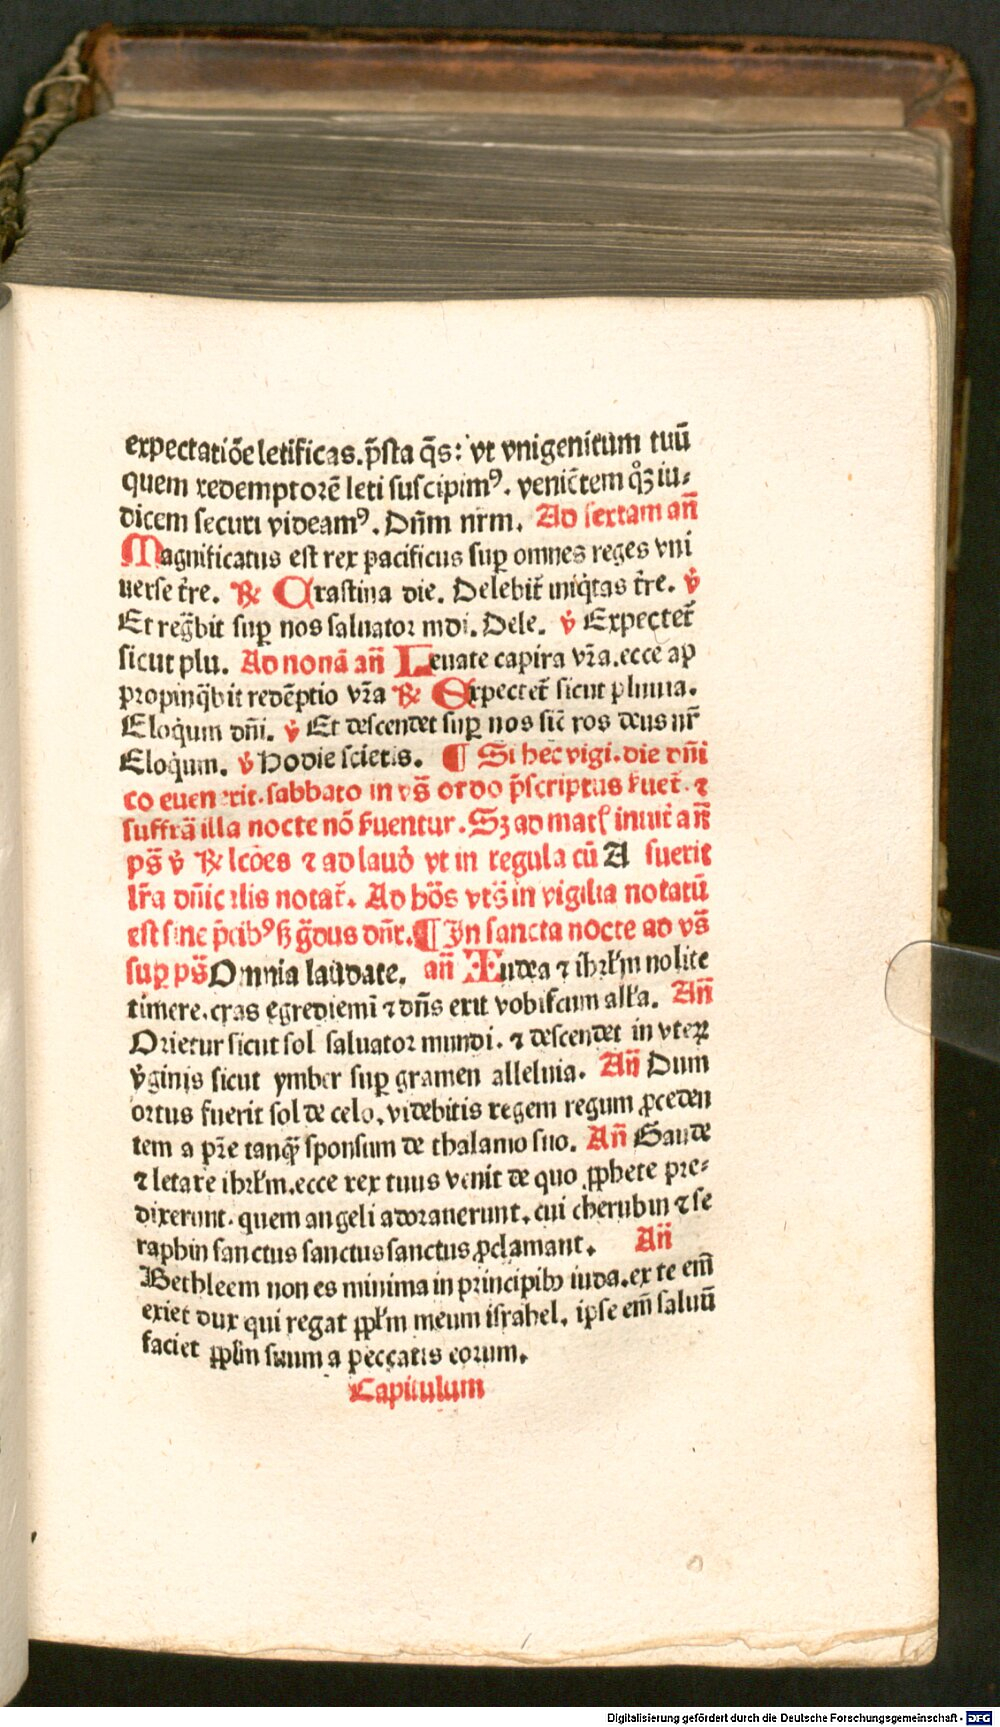 expectatiōe letificas. p̄sta q̄s: vt vnigenitum tuū
quem redemptorē leti suscipimꝰ. veniētem qͦꝫ iu-
dicem securi videamꝰ. Dn̄m nrm. Ad sextam an̄
Magnificatus est rex pacificus suꝑ omnes reges vni
uerse t̄re. ℟ Crastina die. Delebit̄ iniq̇tas t̄re. v̇
Et regͣbit suꝑ nos saluator mdi. Dele. v̇ Expectet̄
sicut plu. Ad nonā an̄ Leuate capita vr̄a. ecce ap
propinq̇bit redēptio vr̄a ℟ Expectet̄ sicut pluuia.
Eloq̇um dn̄i. v̇ Et descendet suꝑ nos sic̄ ros deus nr̄
Eloq̇um. v̇ Hodie scietis. ¶ Si hec vigi. die dn̄i
co euenerit. sabbato in vs̄ ordo p̄scriptus fuet̄. ⁊
suffrā illa nocte nō fuentur. Sꝫ ad matꝭ inuit an̄
ps̄ v̇ ℟ lcōes ⁊ ad laud̄ vt in regula cū A fuerit
lr̄a dn̄icalis notat̄. Ad hōs vts̄ in vigilia notatū
est sine p̄cibꝰ ꝫ gͣdus dn̄r. ¶ In sancta nocte ad vs̄
suꝑ ps̄ Omnia laudate. an̄ Iudea ⁊ ihrlm nolite
timere. cras egrediemī ⁊ dn̄s erit vobiscum alla. An̄
Orietur sicut sol saluator mundi. ⁊ descendet in vteꝝ
v̇ginis sicut ymber suꝑ gramen alleluia. An̄ Dum
ortus fuerit sol de celo. videbitis regem regum ꝓceden
tem a pr̄e tanqͣ sponsum de thalamo suo. An̄ Gaude
⁊ letare ihrlm. ecce rex tuus venit de quo ꝓphete pre-
dixerunt. quem angeli adorauerunt. cui cherubin ⁊ se
raphin sanctus sanctus sanctus ꝓclamant. An̄
Bethleem non es minima in principibꝫ iuda. ex te em̄
exiet dux qui regat ppl̄m meum israhel. ipse em̄ saluū
faciet ppl̄m suum a peccatis eorum.
Capitulum
Digitalisierung gefördert durch die Deutsche Forschungsgemeinschaft - DFG